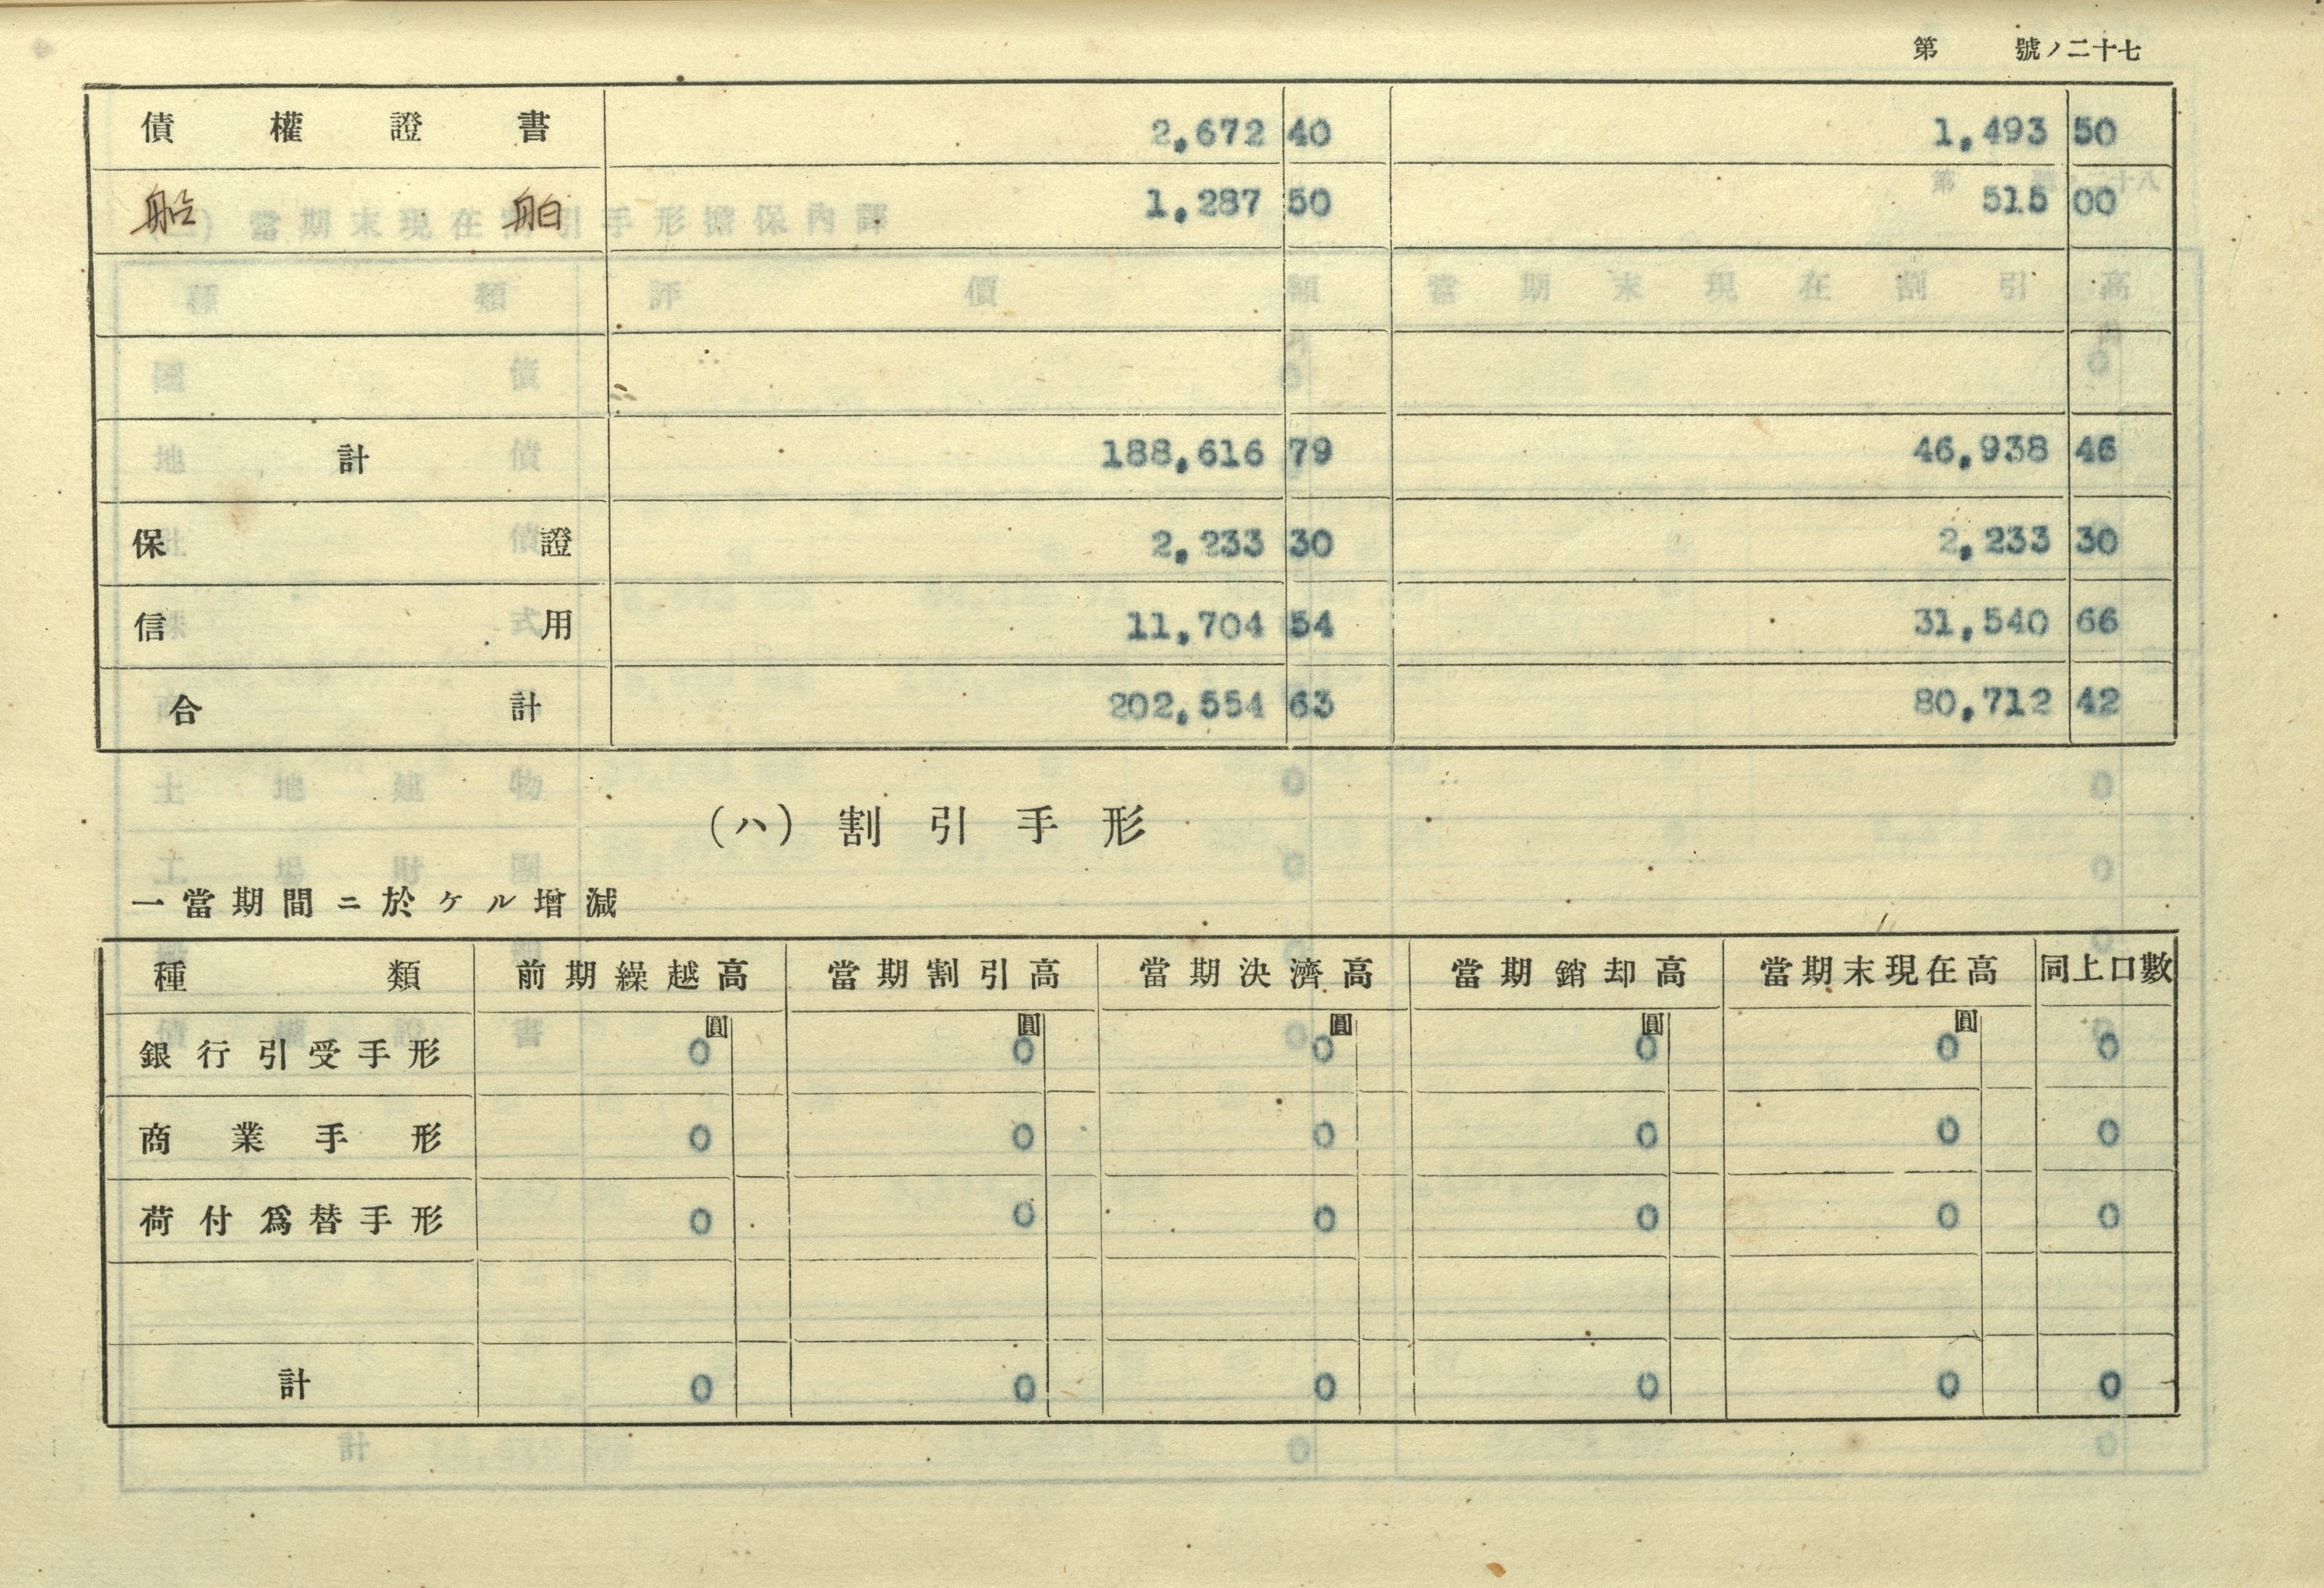 第　號ノ二十七
債權證書 2,672 40 1,493 50
船舶 1,287 50 515 00
計 188,616 79 46,938 46
保證 2,233 30 2,233 30
信用 11,704 54 31,540 66
合計 202,554 63 80,712 42
(ハ) 割引手形
一當期間ニ於ケル增減
種類 前期繰越高 當期割引高 當期決濟高 當期銷却高 當期末現在高 同上口數
圓 圓 圓 圓 圓
銀行引受手形 0 0 0 0 0 0
商業手形 0 0 0 0 0 0
荷付爲替手形 0 0 0 0 0 0
計 0 0 0 0 0 0